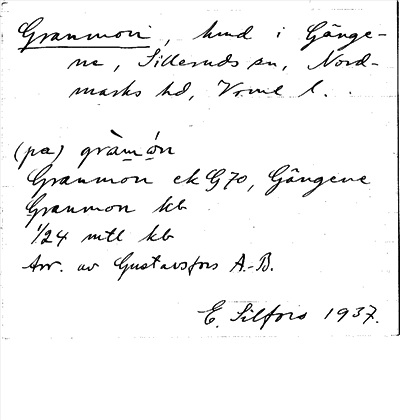 Granmon, hmd i Gänge-
ne, Silleruds sn, Nord-
marks hd, Vrml l.
(pa) gràmo̍n
Granmon ek G70, Gängene
Granmon kb
1/24 mtl kb
Arr. av Gustavsfors A.-B.
E. Silfors 1937.